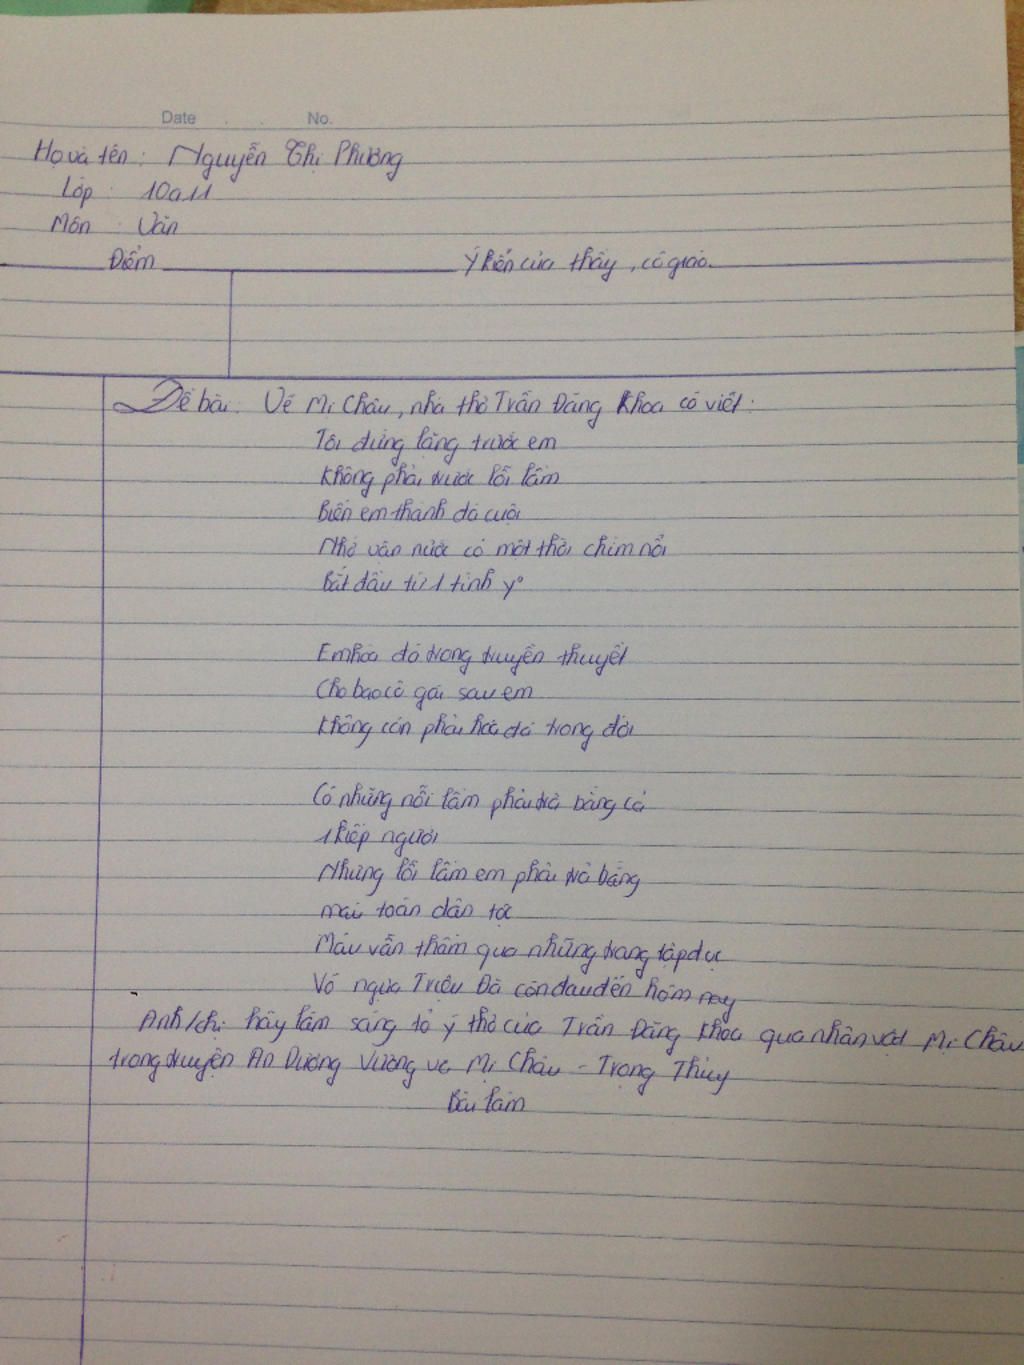 Date . . No.
Họ và tên : Nguyễn Thị Phương
Lớp : 10a11
Môn : Văn
Điểm Ý kiến của thầy, cô giáo.
Đề bài: Về Mị Châu, nhà thơ Trần Đăng Khoa có viết:
Tôi đứng lặng trước em
Không phải trước lỗi lầm
Biến em thành đá cuội
Nhớ vận nước có một thời chìm nổi
Bắt đầu từ 1 tình yº
Em hóa đá trong truyền thuyết
Cho bao cô gái sau em
Không còn phải hóa đá trong đời
Có những nỗi lầm phải trả bằng cả
1 kiếp người
Nhưng lỗi lầm em phải trả bằng
máu toàn dân tộc
Máu vẫn thấm qua những trang tập đọc
Vó ngựa Triệu Đà còn đau đến hôm nay
Anh/chị hãy làm sáng tỏ ý thơ của Trần Đăng Khoa qua nhân vật Mị Châu
trong truyện An Dương Vương và Mị Châu - Trọng Thủy
Bài làm